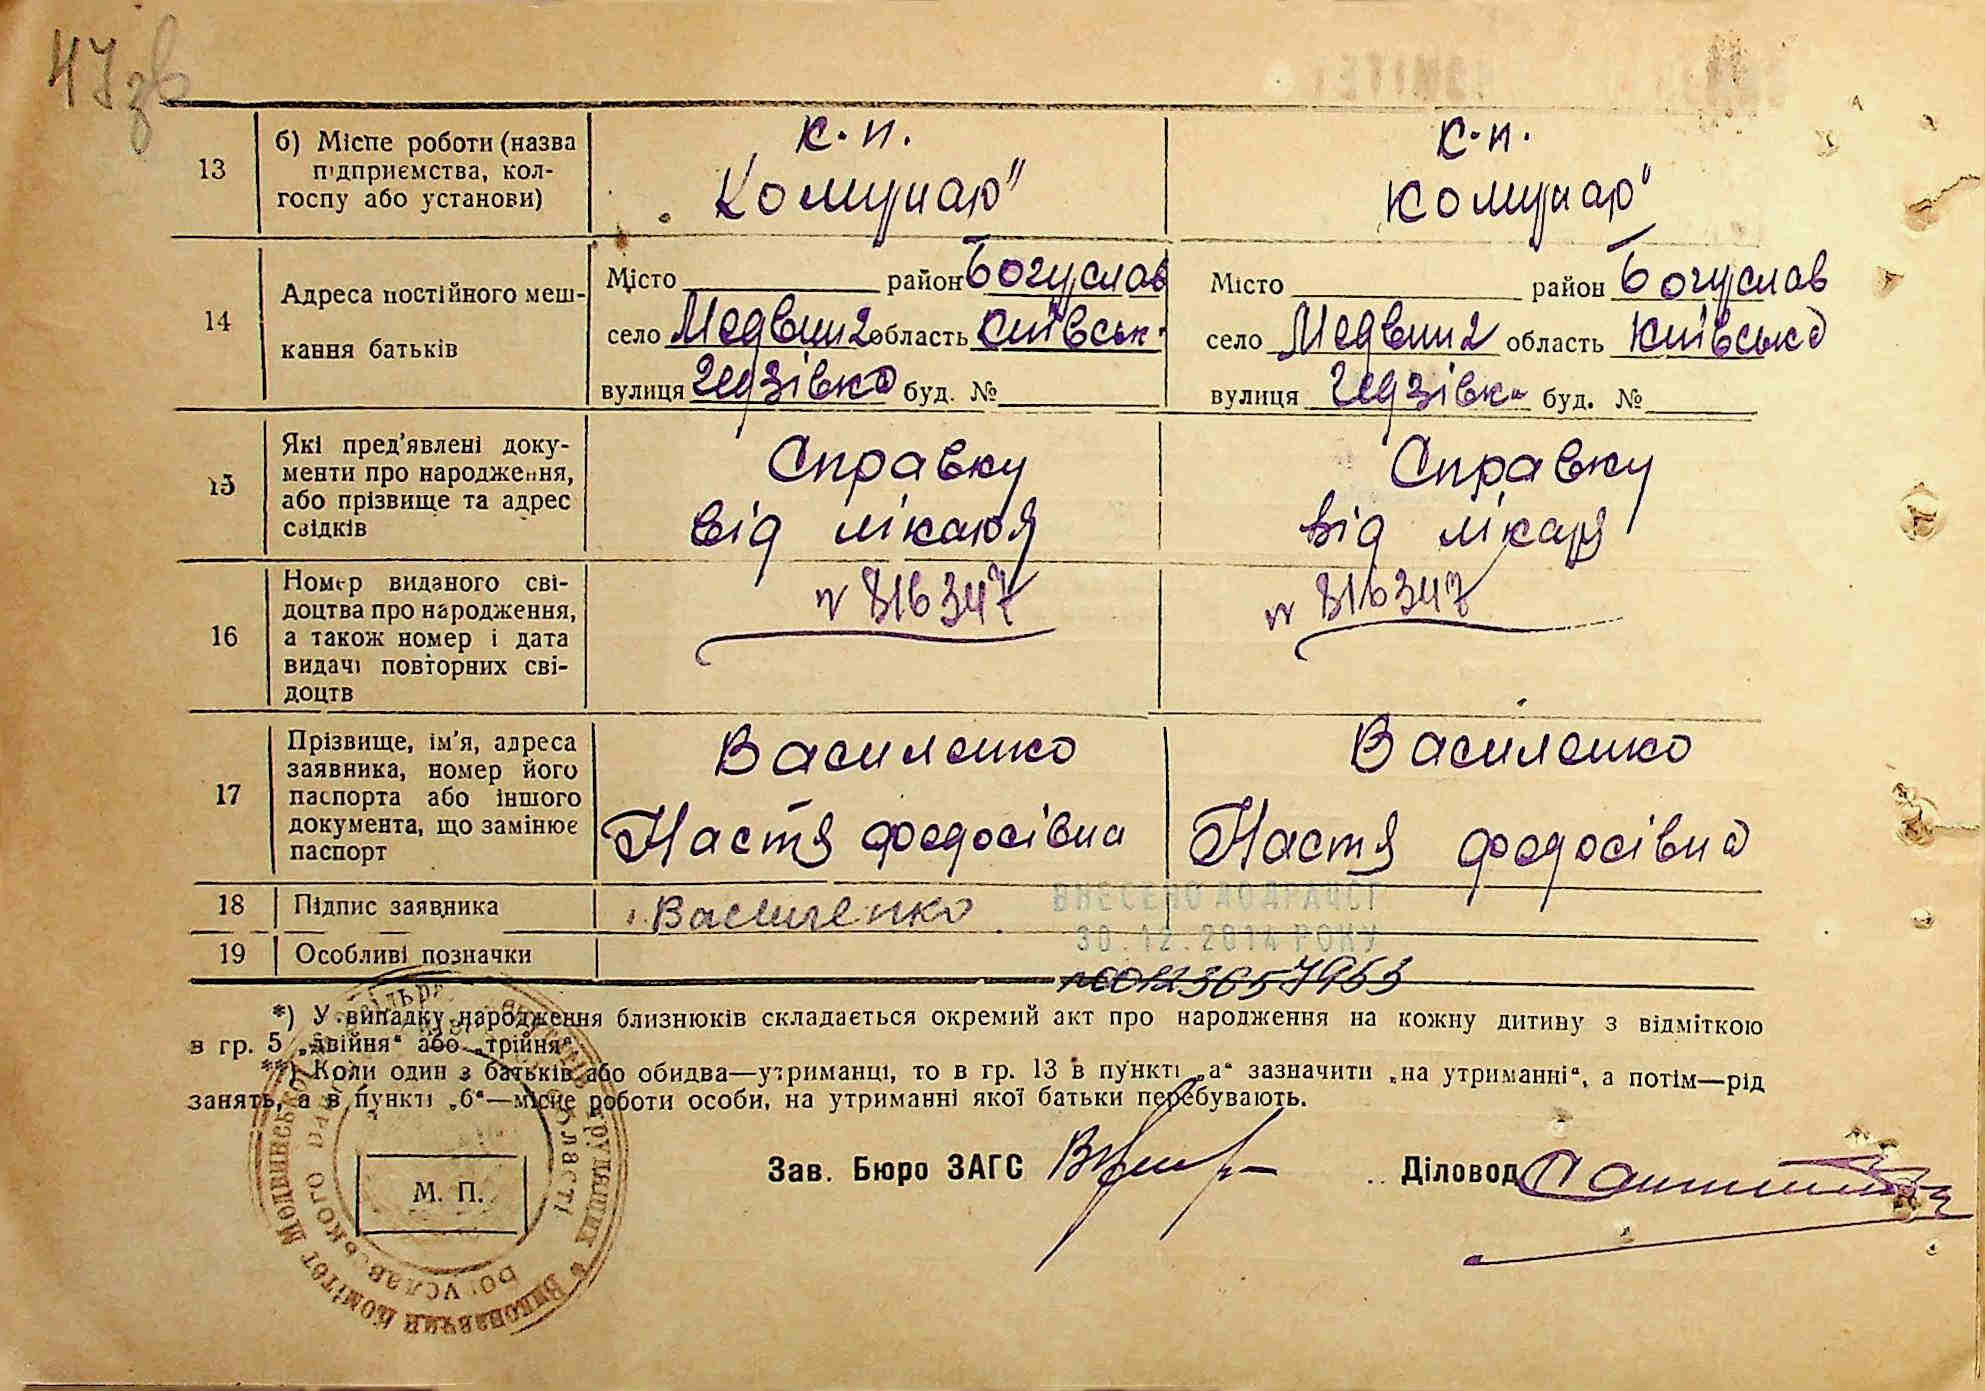 47зв
13
б) Місце роботи (назва
підприємства, кол-
госпу або установи)
к. п.
„Комунар"
к. п.
Комунар"
14
Адреса постійного меш-
кання батьків
Місто район Богуслав
село Медвин 2 область Київськ.
вулиця Гедзівка буд. №
Місто район Богуслав
село Медвин 2 область Київська
вулиця Гедзівка буд. №
15
Які пред'явлені доку-
менти про народження,
або прізвище та адрес
свідків
Справку
від лікаря
Справку
від лікаря
16
Номер виданого сві-
доцтва про народження,
а також номер і дата
видачі повторних сві-
доцтв
№ 816347
№ 816347
17
Прізвище, ім'я, адреса
заявника, номер його
паспорта або іншого
документа, що замінює
паспорт
Василенко
Настя Федосівна
Василенко
Настя Федосівна
18
Підпис заявника
Василенко
19
Особливі позначки
ВНЕСЕНО ДО ДРАЦСГ
30.12.2014 РОКУ
№00123657963
*) У випадку народження близнюків складається окремий акт про народження на кожну дитину з відміткою
в гр. 5 „двійня" або „трійня".
**) Коли один з батьків або обидва—утриманці, то в гр. 13 в пункті „а" зазначити „на утриманні", а потім—рід
занять, а в пункті „б"—місце роботи особи, на утриманні якої батьки перебувають.
Зав. Бюро ЗАГС
Діловод
М. П.
Виконавчий Комітет Медвинської
трудящих
Богуславського
області